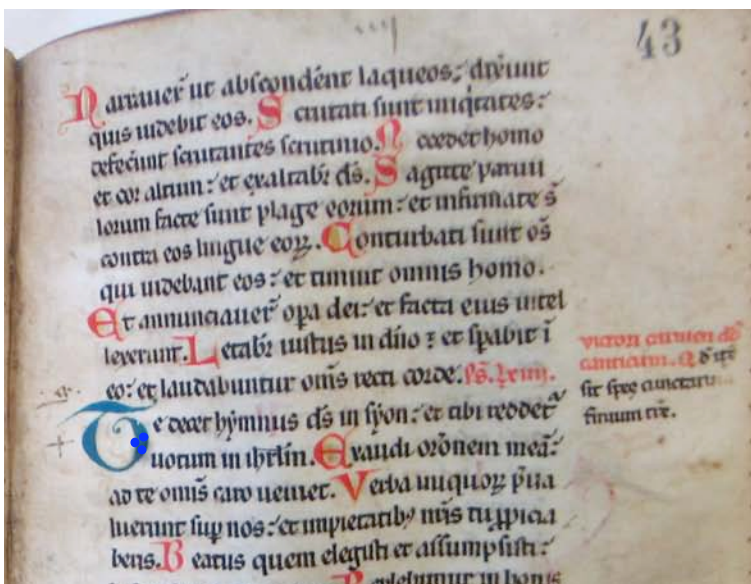 43
Narrauer̄ ut absconderēt laqueos: dixerunt
quis uidebit eos. Scrutati sunt iniq̇tates:
defecerunt scrutantes scrutinio. Accedet homo
et cor altum: et exaltabit᷑ dš. Sagitte paruu
lorum facte sunt plage eorum: et infirmate s̄
contra eos lingue eoꝝ. Conturbati sunt om̄s
qui uidebant eos: et timuit omnis homo.
Et annunciauer̄ opa dei: et facta eius intel
lexerunt. Letabit᷑ iustus in dn̄o ⁊ et sp̄abit ī
eo: et laudabuntur om̄s recti corde. Ps̄. lxiiii.
Te decet hymnus dš in syon: et tibi reddet᷑
uotum in ihrlm̄. Exaudi orōnem meā:
ad te omīs caro ueniet. Verba iniquoꝝ p̄ua
luerunt sup̄ nos: et impietatibꝰ nr̄is tu ꝓpicia
beris. Beatus quem elegisti et assumpsisti:
Replebimur in bonis
canticum.
sit spes cunctaru
finium tr̄e.